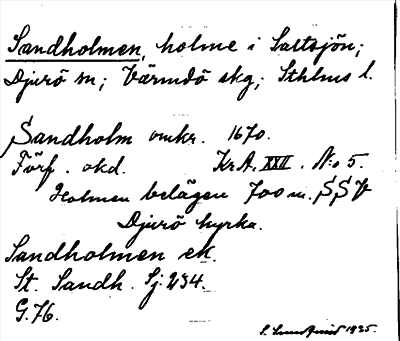 Sandholmen, holme i Saltsjön;
Djurö sn; Värmdö skg; Sthlms l.
Sandholm omkr. 1670.
Förf. okd. KrA. XXII. N:o 5.
Holmen belägen 700 m. SSV
Djurö kyrka.
Sandholmen ek.
St. Sandh. Sj. 234.
G. 76.
1935.